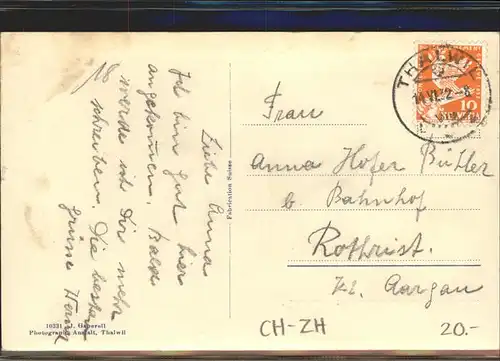 Liebe Anna
Ich bin gut hier
angekommen. Bald
werde ich Dir mehr
schreiben. Die besten
grüsse
Fabrication Suisse
10331 J. Gaberell
Photograph. Anstalt, Thalwil
THALWIL
10
Frau
Anna Hofer Bühler
b. Bahnhof
Rothrist.
Kt. Aargau
CH-ZH
20.-